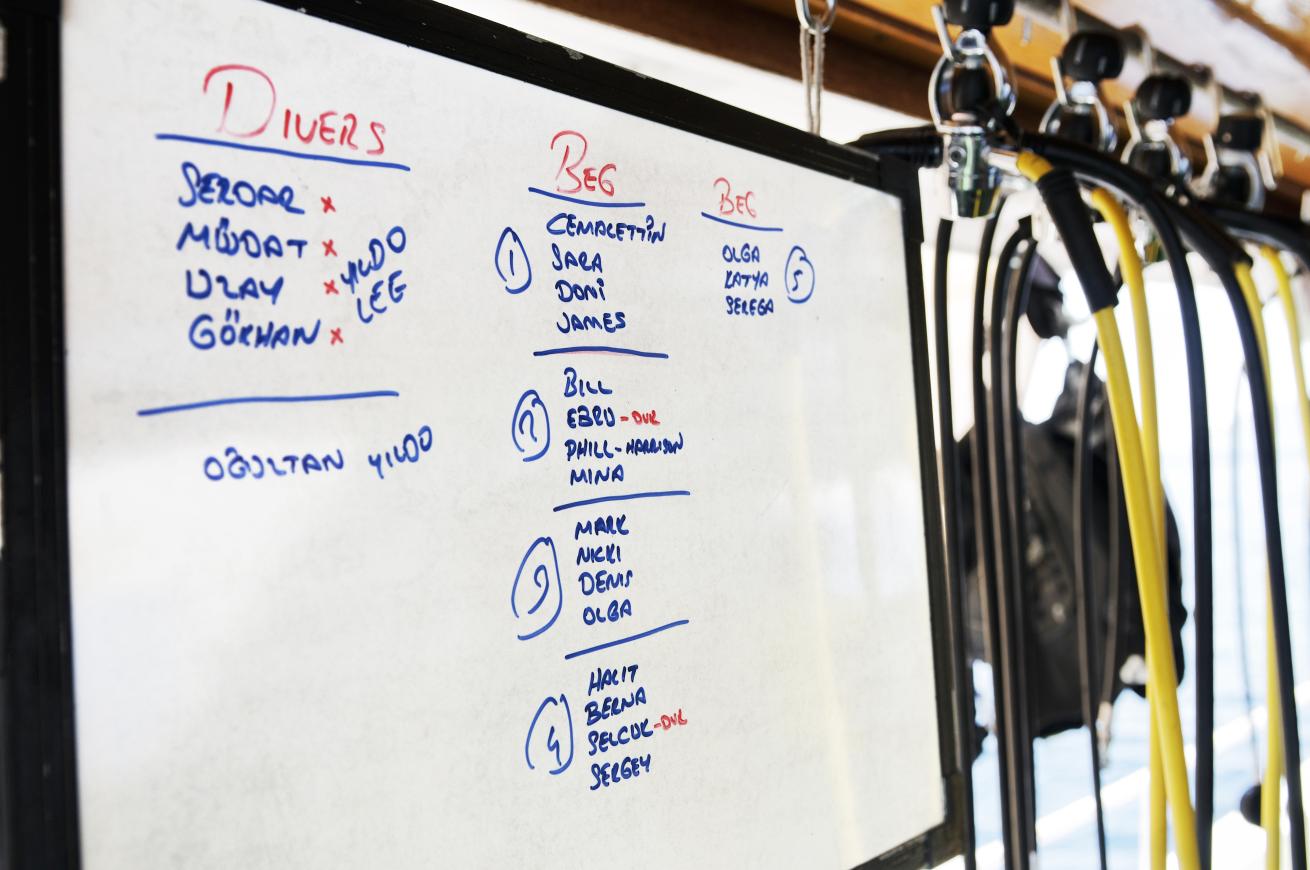 DIVERS
SERDAR x
MÜJDAT x
UZAY x YILDO
LEE
GÖKHAN x
OĞULTAN YILDO
BEG
1
CEMALETTİN
SARA
DONİ
JAMES
2
BILL
EBRU - DVR
PHILL - HARRISON
MINA
3
MARK
NICKI
DENIS
OLGA
4
HALIT
BERNA
SELCUK - DVR
SERGEY
BEG
OLGA
KATYA 5
SEREGA